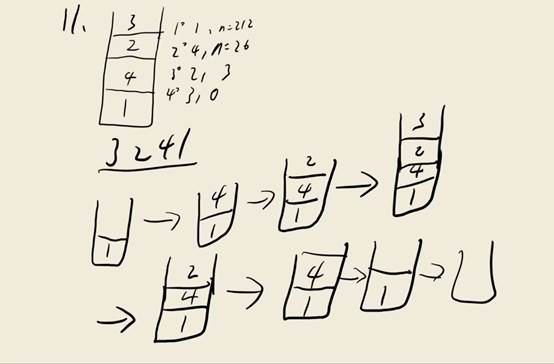 11.
3
2
4
1
1° 1, n=212
2° 4, n=26
3° 2, 3
4° 3, 0
3241
1
4
1
2
4
1
3
2
4
1
2
4
1
4
1
1